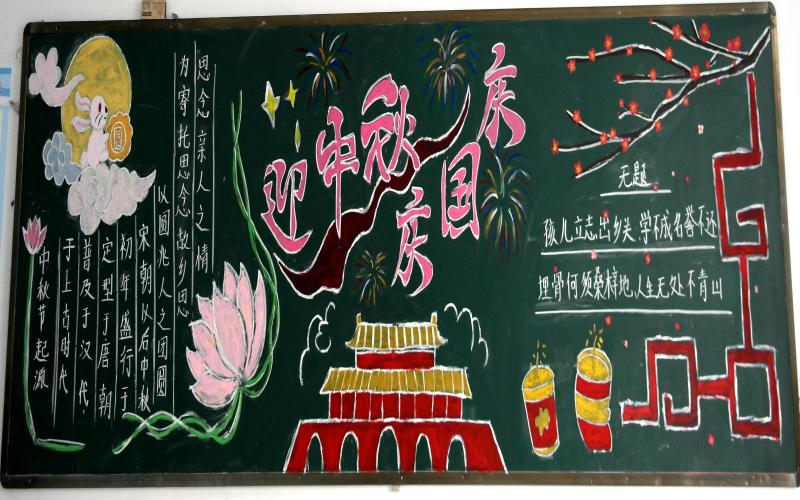 圆
中秋节起源
于上古时代
普及于汉代,
定型于唐朝
初年盛行于
宋朝以后中秋
以圆兆人之团圆
为寄托思念故乡思
思念亲人之情
迎中秋
庆国庆
无题
孩儿立志出乡关,学不成名誉不还
埋骨何须桑梓地,人生无处不青山